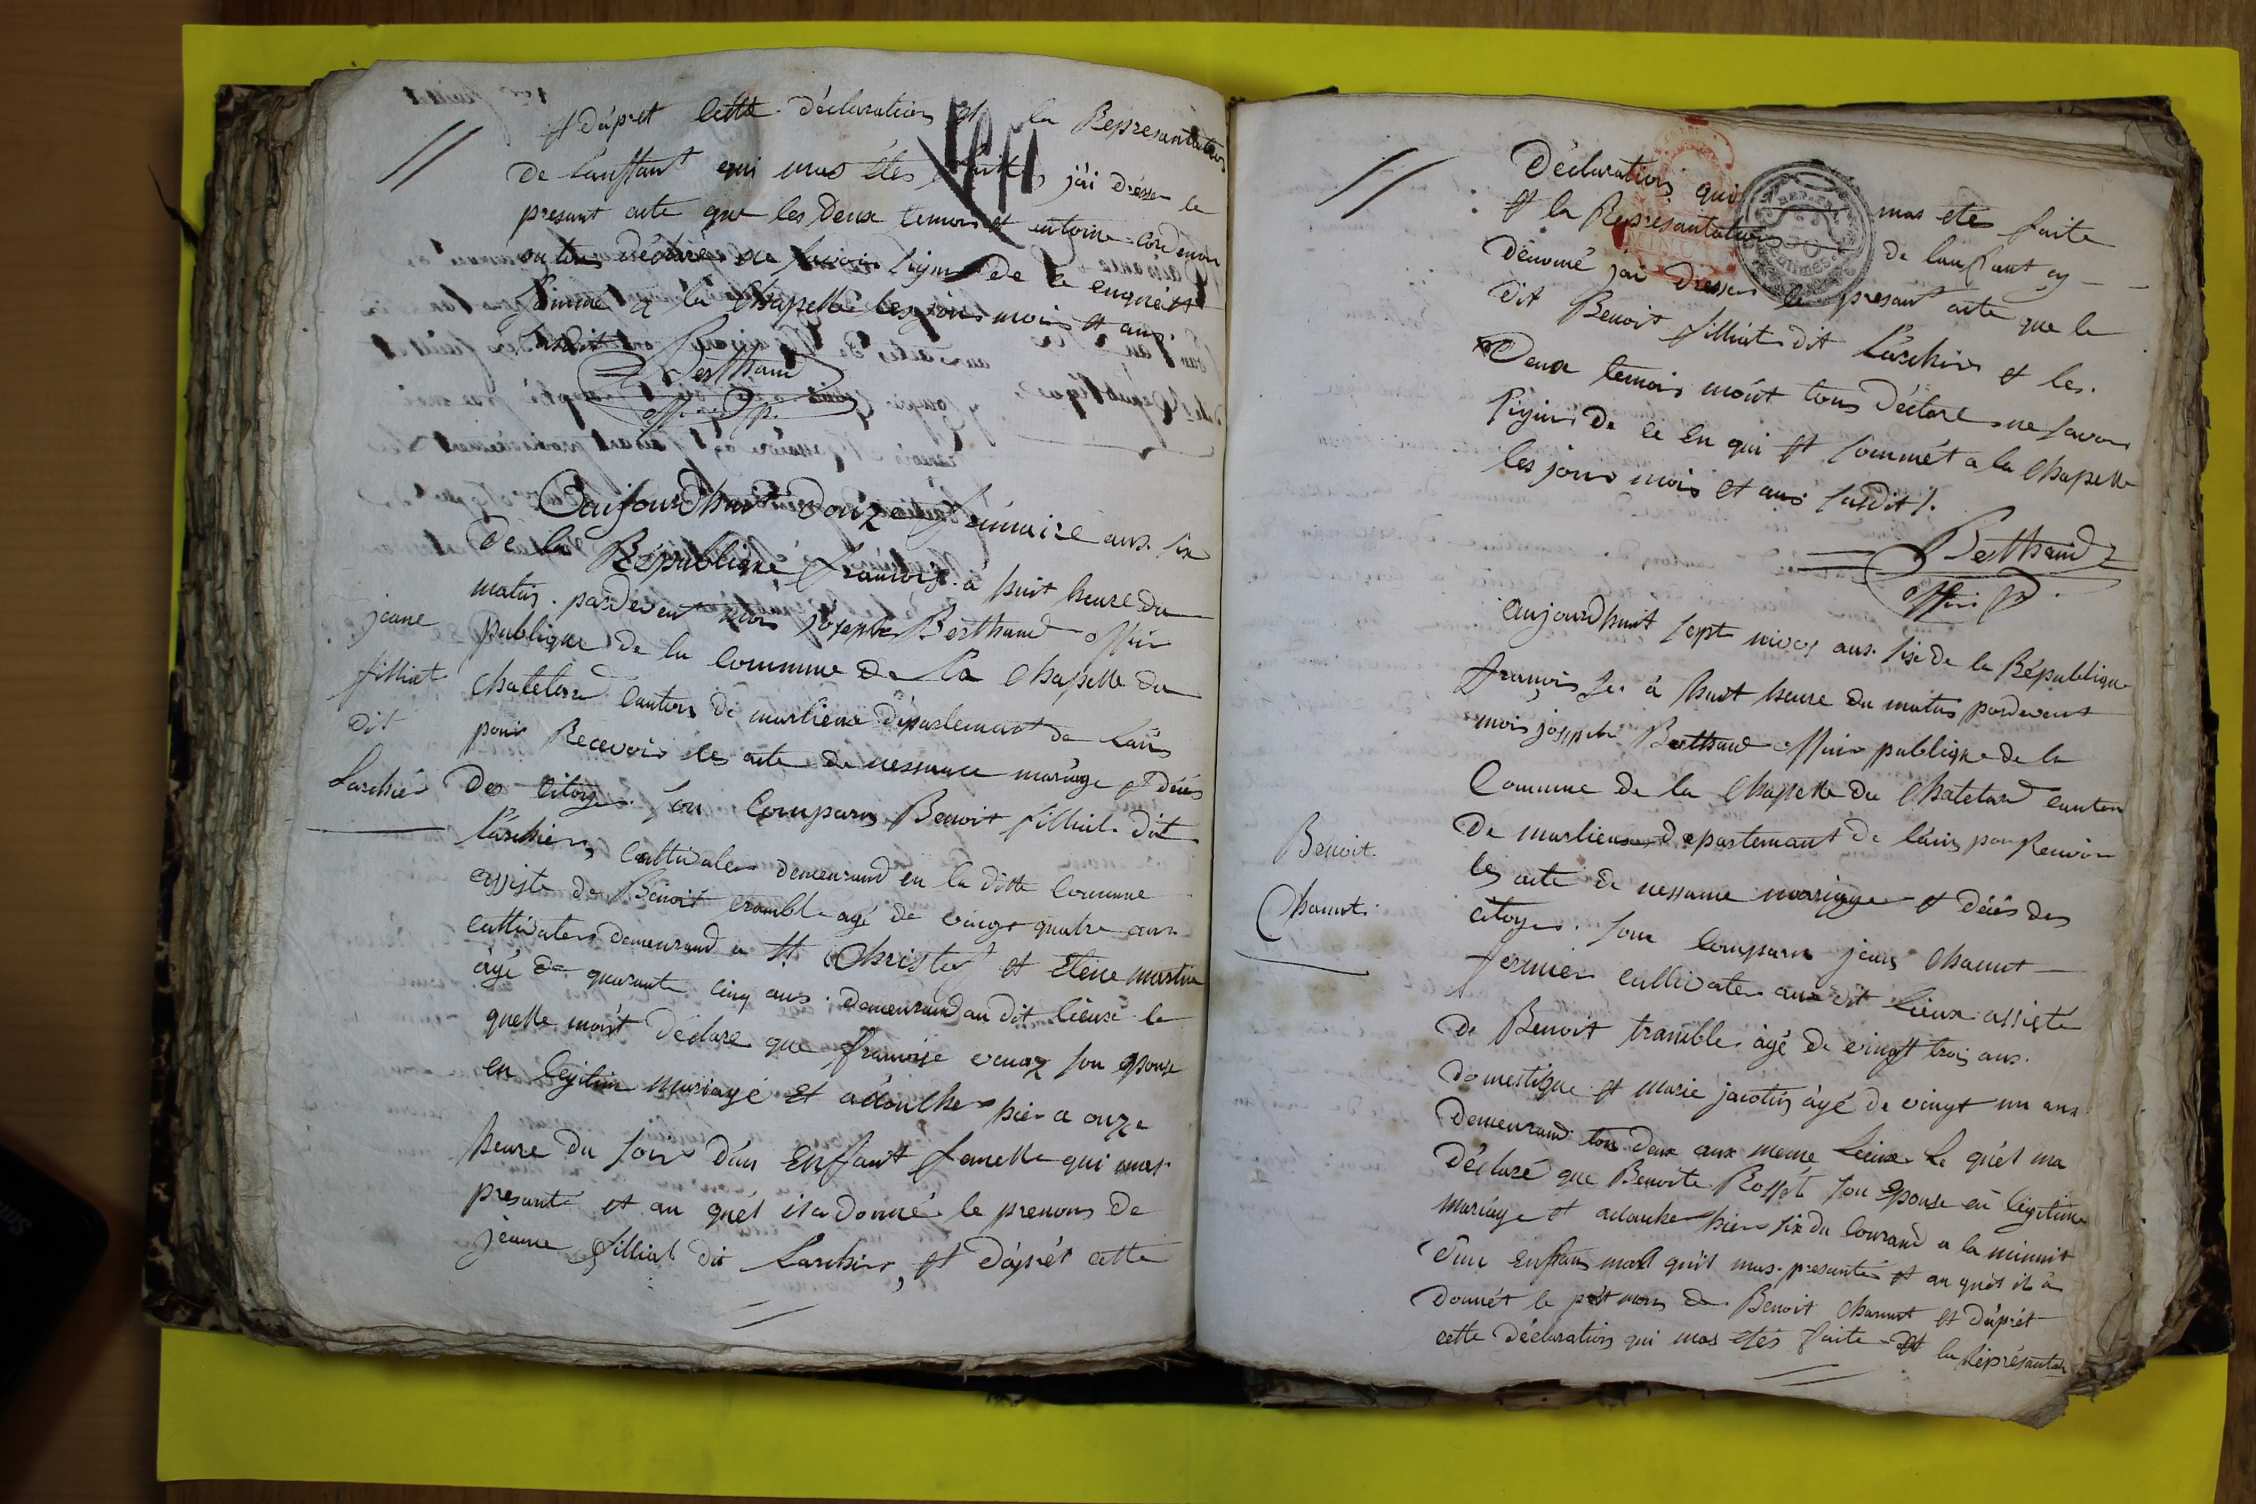 dáprét cette déclaration et la Représantation
de lanffant qui mas étés faite j'ai dresser le
présant acte que les deux temoins et antoine
ont tous déclaré ne savoir signer de ce enquéit
sommé a la Chapelle les jour mois et ans
susdit
Berthaud
offici p.
aujourdhuit douze frimaire ans six
de la République francoise a huit heure du
matin. pardevent moi joseph Berthaud offici
publique de la Commune de la Chapelle du
Chatelard Canton de marlieux département de lains
pour Recevoir les acte de nessance mariage et décés
des Citoyes. son Comparus Benoit filliat dit
larchier cultivater demeurand en la ditte Commune
assiste de Benoit tramble agé de vingt quatre ans
cultivater demeurand a St Christof et élene martin
âgé de quarante cinq ans. demeurand au dit lieux le
quelle móit déclare que francoise venaz son epouse
en legitime mariagé et adouche hier a onze
heure du soir dun Enffant femelle qui mas
presanté et au quél il a donné le prenons de
jeanne filliat dit Larchier, et dáprét cette
jeane
filliat
dit
Larchier
Déclaration qui mas étés faite
et la Représantation de lanffant cy
dénomé j'ai dresser le présant acte que le
dit Benoit filliat dit Lárchier et les
Deux temoin móint tous déclare ne savoir
signer de ce en qui et sommét a la Chapelle
les jour mois et ans susdit /.
Berthaud
offici p.
aujourdhuit sept nivos ans six de la République
francois se. à huit heure du matin pardevent
moi joseph Berthaud offici publique de la
Commune de la Chapelle du Chatelard canton
de marlieux departemant de lains pour Recevoir
les acte de nessance mariage et décés des
citoyes. son Comparu jean Chanut
fermier cultivater aux dit lieux assisté
de Benoit tramble âgé de vingtt trois ans.
domestique et marie jacotin âgé de vingt un ans
demeurand tou deux aux meme lieux. le quél ma
Déclaré que Benoite Rossét son Epouse en légitime
mariage et adouche hier six du Courand a la minuit
d'un Enffans mal quil mas presantés et au quél il à
donnét le prét nons de Benoit Chanut et dáprét
cette déclaration qui mas étés faite et la Réprésantation
Benoit
Chanut